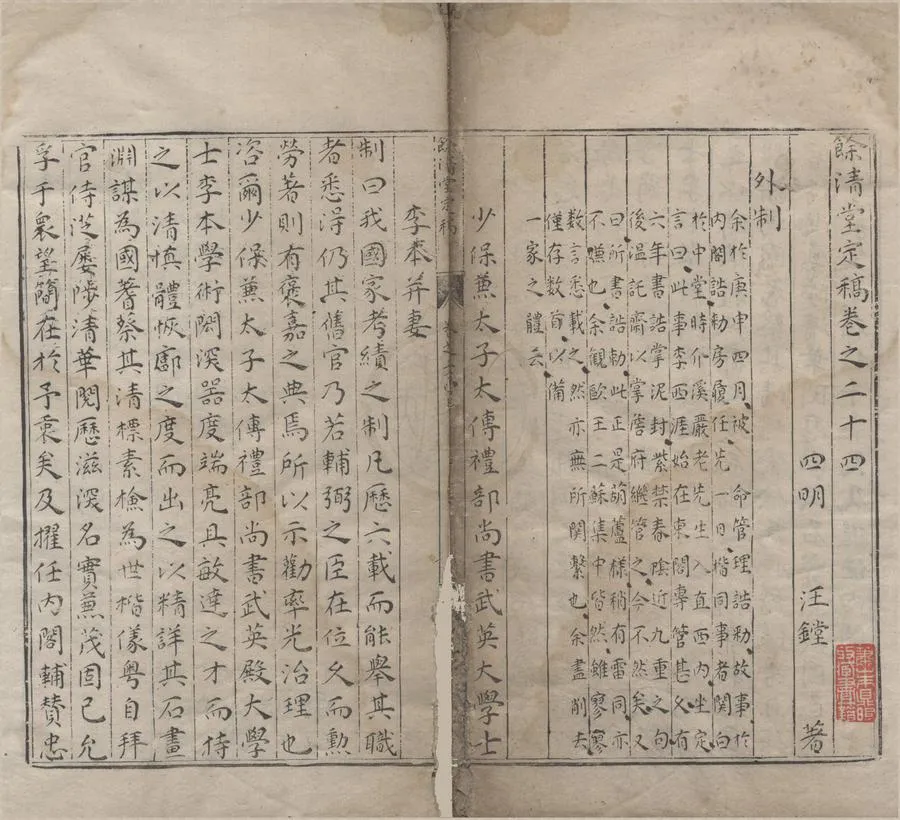 餘清堂定稿卷之二十四
四明 汪鏜 著
外制
余於庚申四月被 命管理誥勑故事於
內閣誥勑房履任先一日揩同事者關白
於中堂時介溪嚴老先生入直西內坐定
言曰此事李西涯始在東閣專管甚久有
六年書誥掌泥封紫禁春陰近九重之句
後溫託齋以掌詹府繼管之今不然矣又
曰所書誥勑此正是葫蘆樣稍有雷同亦
不嫌也余觀歐王二蘇集中皆然雖寥寥
數言悉載之然亦無所關繫也余盡削去
僅存數首以備
一家之體云
少保蕙太子太傳禮部尚書武英大學士
李本并妻
制曰我國家考績之制凡歷六載而能舉其職
者悉得仍其舊官乃若輔弼之臣在位久而勳
勞著則有褒嘉之典焉所以示勸率光治理也
咨爾少保蒹太子太傳禮部尚書武英殿大學
士李本學術閎深器度端亮具敏達之才而侍
之以清慎體恢廓之度而出之以精詳其石畫
淵謀為國蓍蔡其清標素檢為世楷儀粵自拜
官侍芝屡陟清華閱歷滋深名實蕪茂固已允
孚于衆望簡在於予衷矣及擢任內閣輔贊忠
餘清堂定稿
卷之二十四